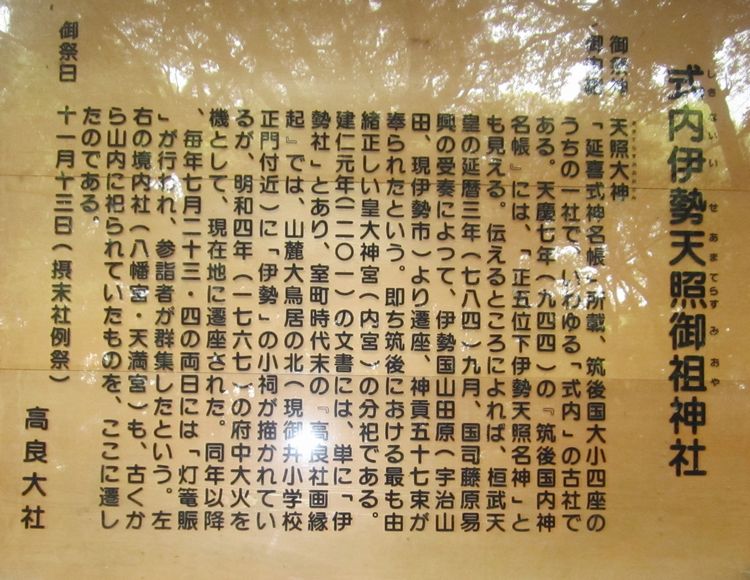 式内伊勢天照御祖神社
しきないいせあまてらすみおや
御祭神 天照大神
「延喜式神名帳」所載、筑後国大小四座の
うちの一社で、いわゆる「式内」の古社で
ある。天慶七年(九四四)の『筑後国内神
名帳』には、「正五位下伊勢天照名神」と
も見える。伝えるところによれば、桓武天
皇の延暦三年(七八四)九月、国司藤原易
興の受奏によって、伊勢国山田原(宇治山
田、現伊勢市)より遷座、神貢五十七束が
奉られたという。即ち筑後における最も由
緒正しい皇大神宮(内宮)の分祀である。
建仁元年(一二〇一)の文書には、単に「伊
勢社」とあり、室町時代末の『高良社画縁
起』では、山麓大鳥居の北(現御井小学校
正門付近)に「伊勢」の小祠が描かれてい
るが、明和四年(一七六七)の府中大火を
機として、現在地に遷座された。同年以降
、毎年七月二十三・四の両日には「灯篭賑
」が行われ、参詣者が群集したという。左
右の境内社(八幡宮・天満宮)も、古くか
ら山内に祀られていたものを、ここに遷し
たのである。
御祭日 十一月十三日(摂末社例祭)
高良大社